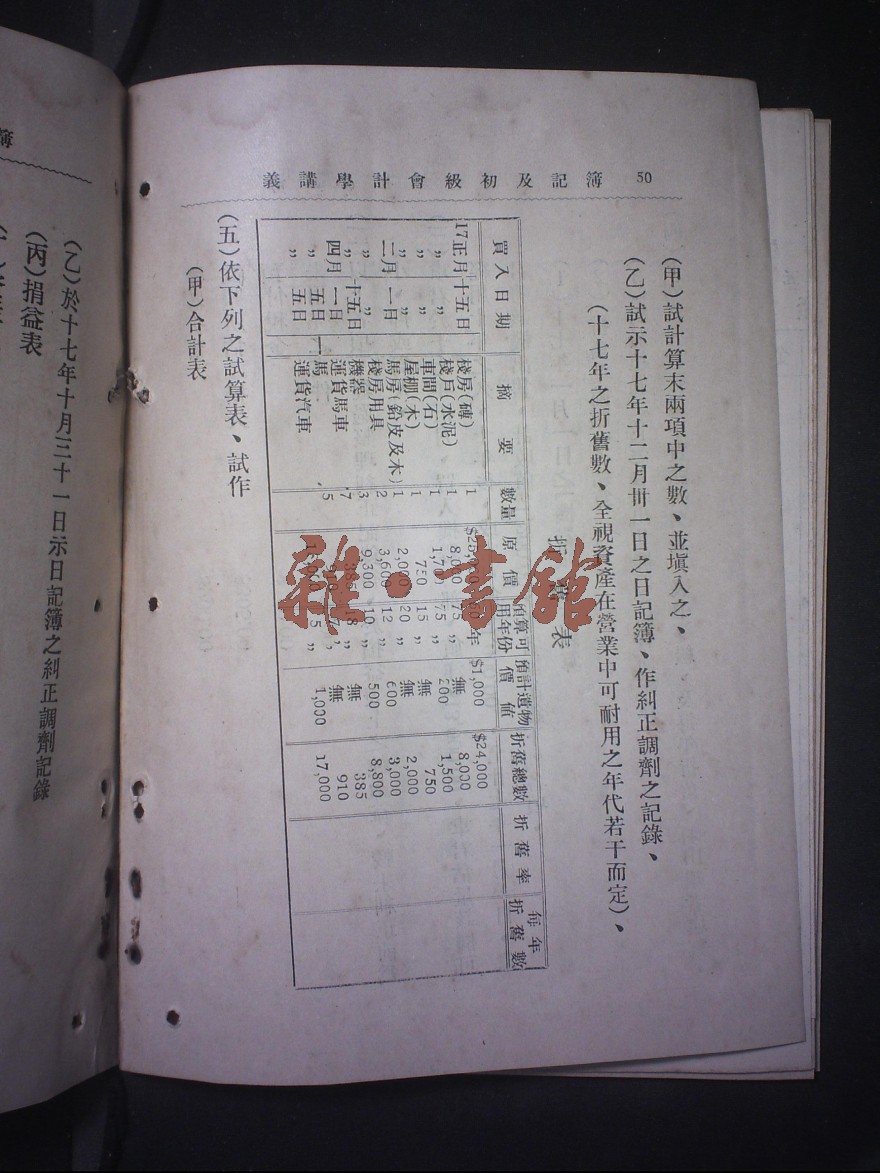 50　簿記及初級會計學講義
（甲）試計算末兩項中之數、並塡入之、
（乙）試示十七年十二月卅一日之日記簿、作糾正調劑之記錄、
（十七年之折舊數、全視資產在營業中可耐用之年代若干而定）、
折　表
買入日期　摘要　數量　原價　預算可用年份　預計遺物價値　折舊總數　折舊率　每年折舊數
17正月十五日　棧房(磚)　1　年　$1,000　$24,000
〃　〃　棧戶(水泥)　1　8,000　75〃　無　8,000
〃　〃　車間(石)　1　75〃　200　1,500
〃　〃　屋棚(木)　1　750　15〃　無　750
二月一日　馬房(鉛皮及木)　1　2,000　20〃　無　2,000
〃　〃　棧房用具　2　3,600　12〃　600　3,000
〃　十五日　機器　3　9,300　10〃　500　8,800
四月一日　運貨馬車　7　8〃　無　385
〃　五日　馬　5　7〃　無　910
〃　五日　運貨汽車　5〃　1,000　17,000
（五）依下列之試算表、試作
（甲）合計表
簿
（乙）於十七年十月三十一日示日記簿之糾正調劑記錄
（丙）捐益表
雜·書館